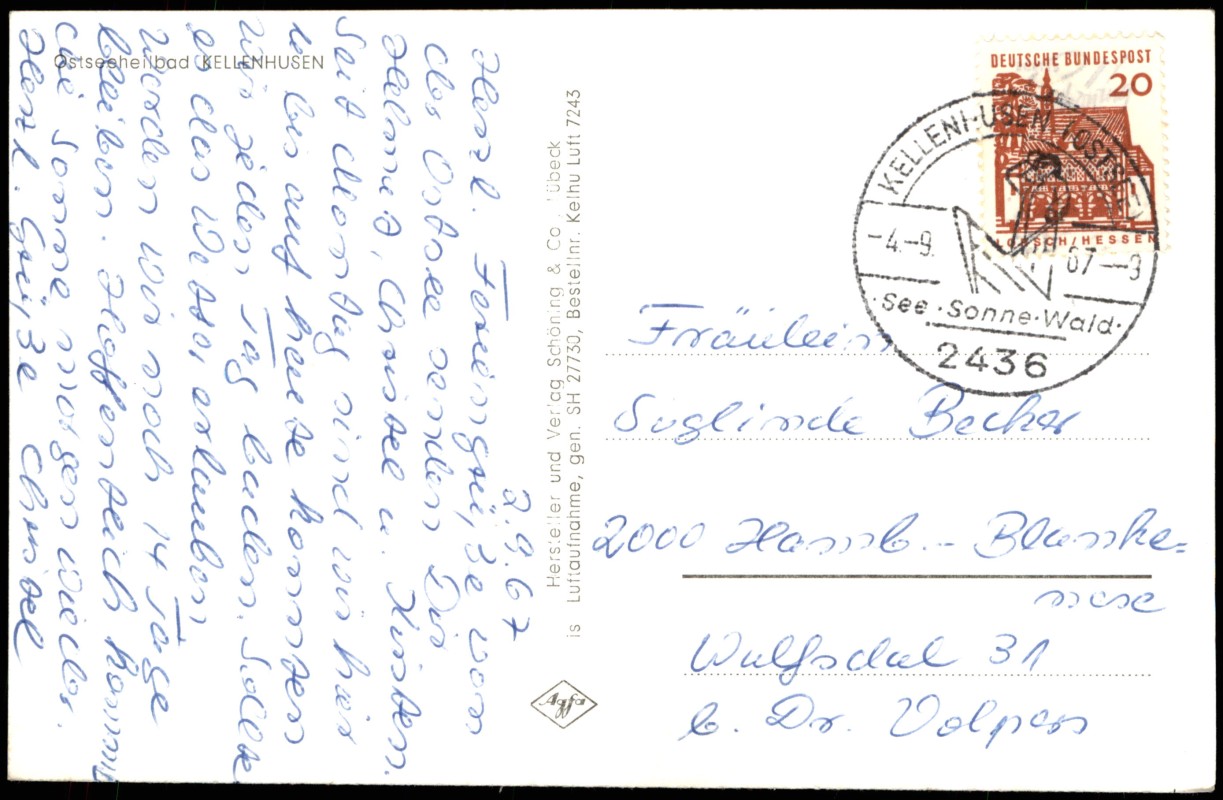 Ostseeheilbad KELLENHUSEN
2.9.67
Herzl. Feriengrüße von
der Ostsee senden Dir
Helmut, Christel u. Kirsten.
Seit Montag sind wir hier
u. bis auf heute konnten
wir jeden Tag baden. Sollte
es das Wetter erlauben
werden wir noch 14 Tage
bleiben. Hoffentlich kommt
die Sonne morgen wieder.
Herzl. Grüße Christel
Hersteller und Verlag Schöning & Co., Lübeck
Luftaufnahme, gen. SH 27730, Bestellnr. Kelhu Luft 7243
is
Agfa
DEUTSCHE BUNDESPOST
20
LORSCH/HESSEN
KELLENHUSEN (OSTSEE)
-4.-9. 67-9
See·Sonne·Wald
2436
Fräulein
Süglinde Becker
2000 Hamb.-Blanke=
nese
Wulfsdal 31
b. Dr. Volpers